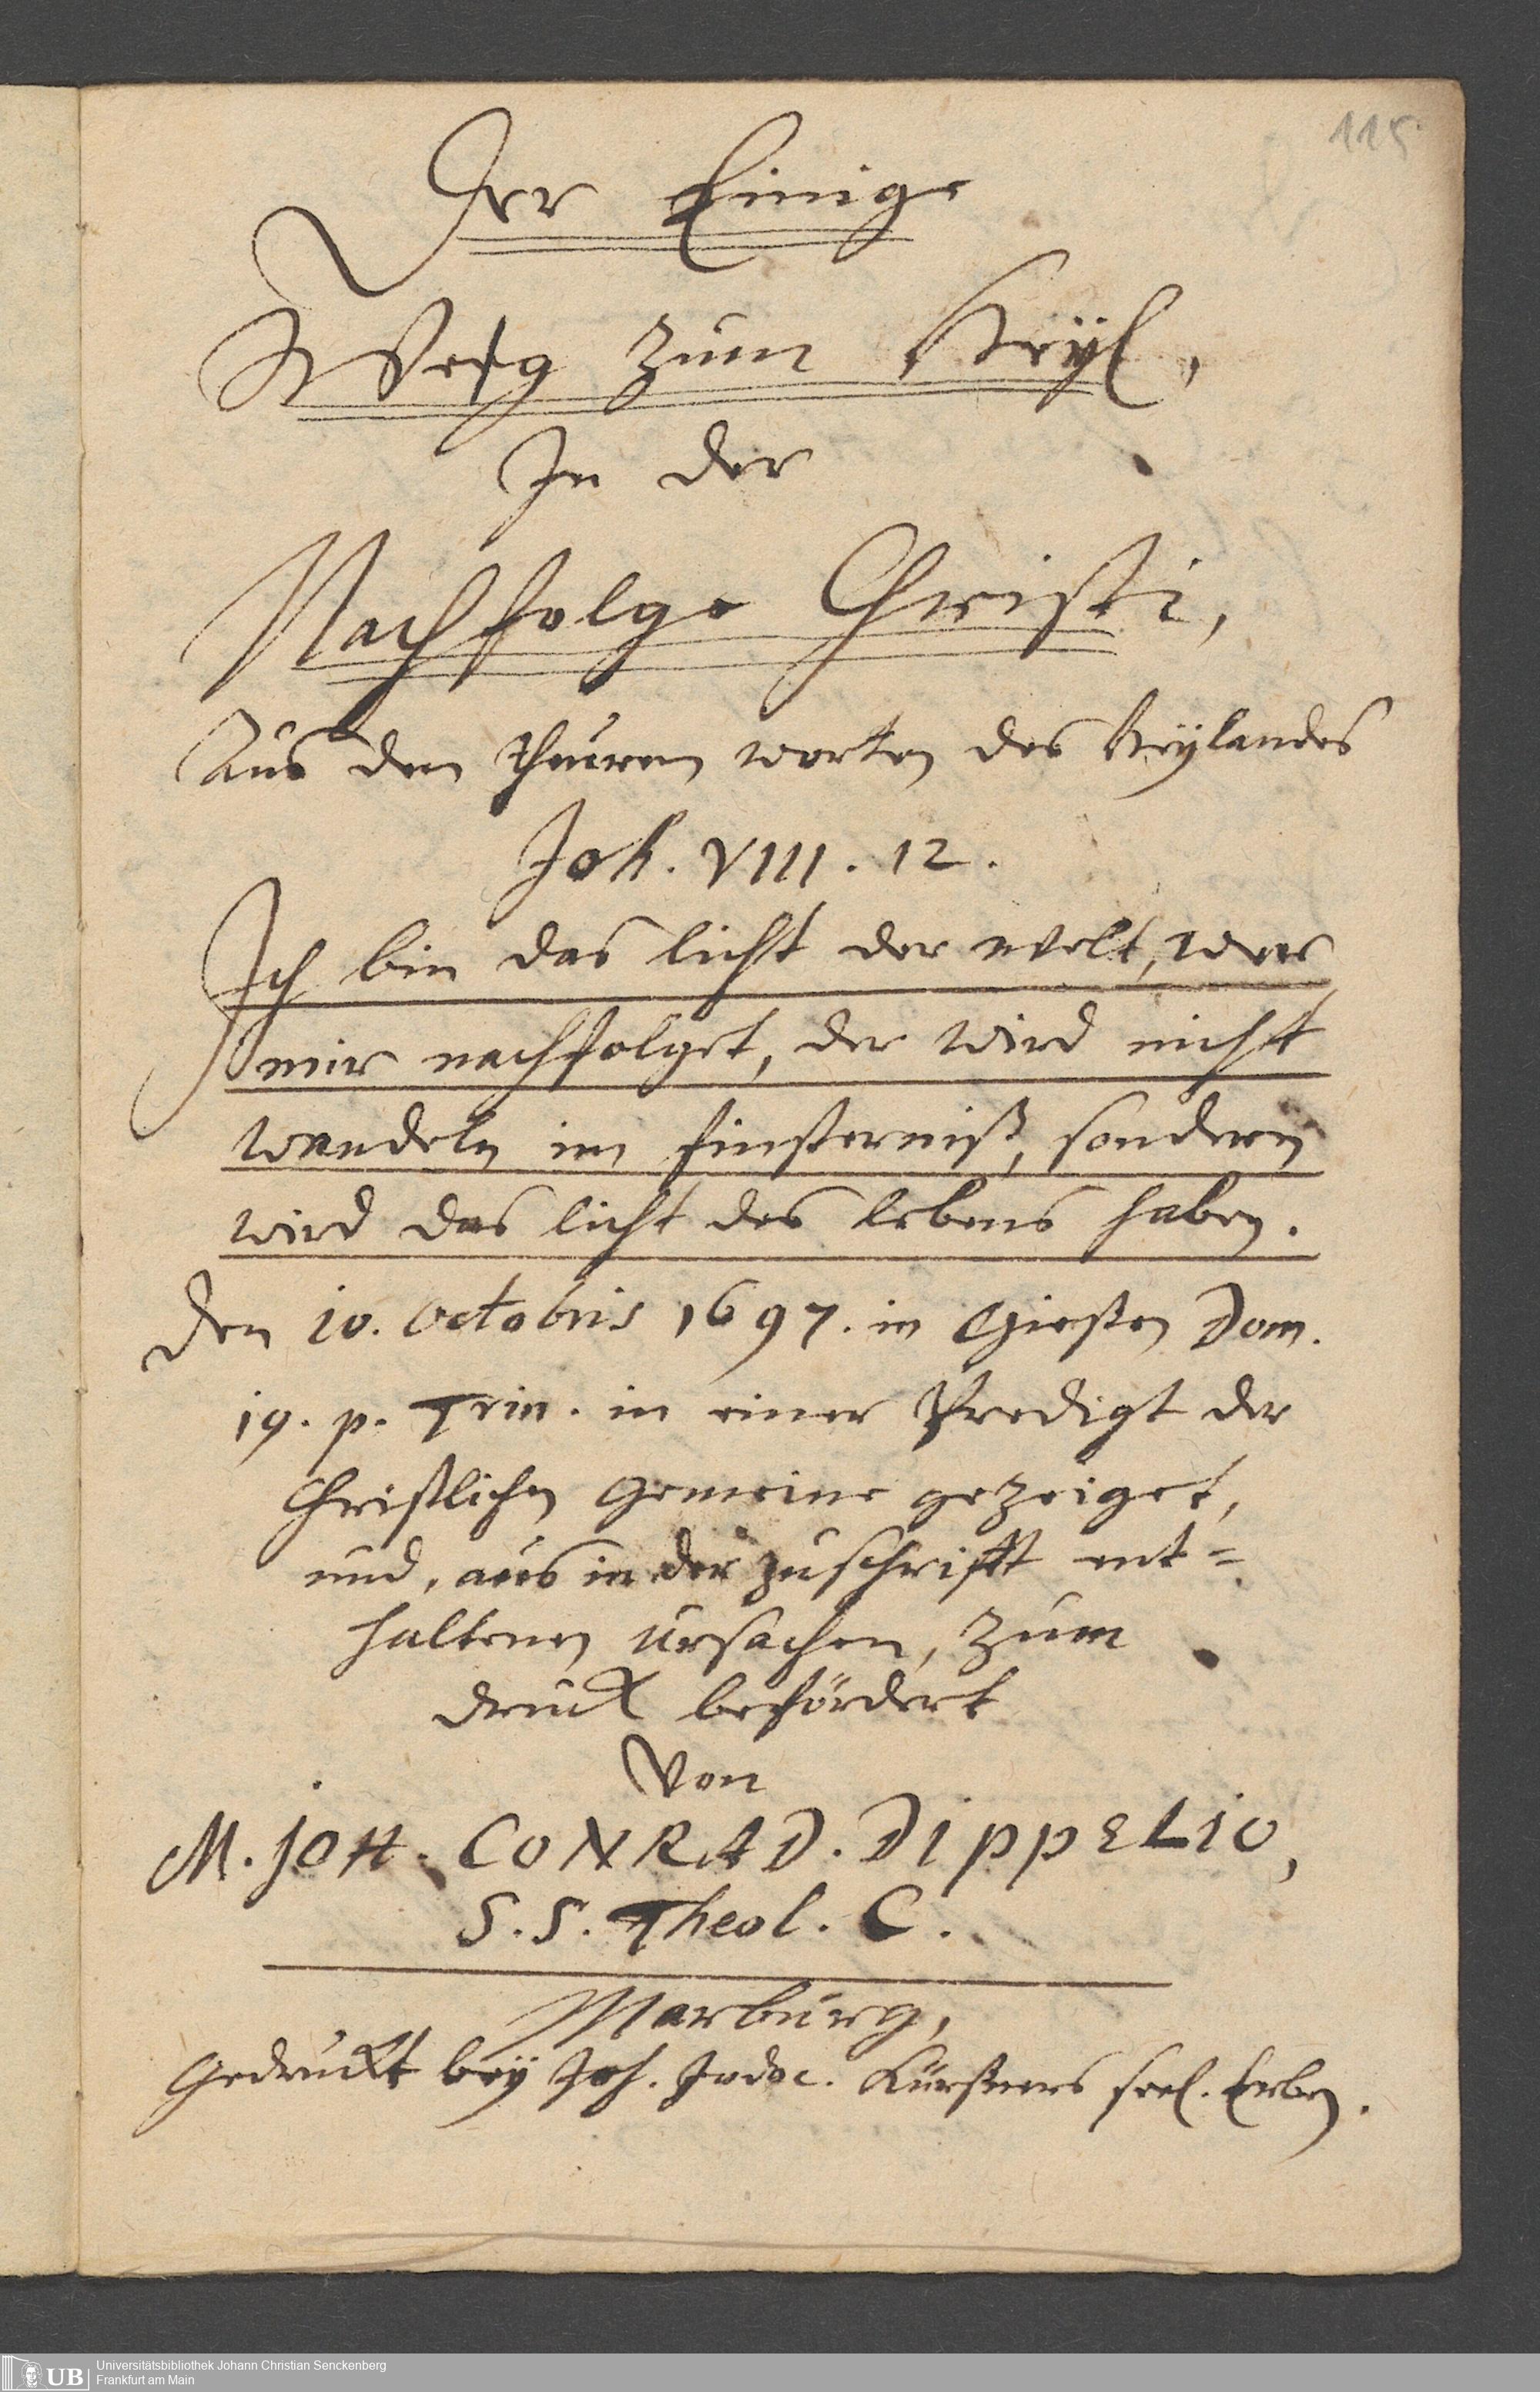 115
Der Einige
Weg zum Heÿl,
In der
Nachfolge Christi,
Aus den theuren worten des Heÿlandes
Joh. VIII. 12.
Ich bin das licht der welt, wer
mir nachfolget, der wird nicht
wandeln im finsterniß, sondern
wird das licht des lebens haben.
Den 10. Octobris 1697. in Giessen Dom.
19. p. Trin. in einer Predigt der
Christlichen Gemeine gezeiget,
und, aus in der zuschrifft ent=
haltenen ursachen, zum
druck befördert
Von
M. JOH. CONRAD. DIPPELIO,
S. S. Theol. C.
Marburg,
Gedruckt beÿ Joh. Jodoc. Kürßners seel. Erben.
UB
Universitätsbibliothek Johann Christian Senckenberg
Frankfurt am Main